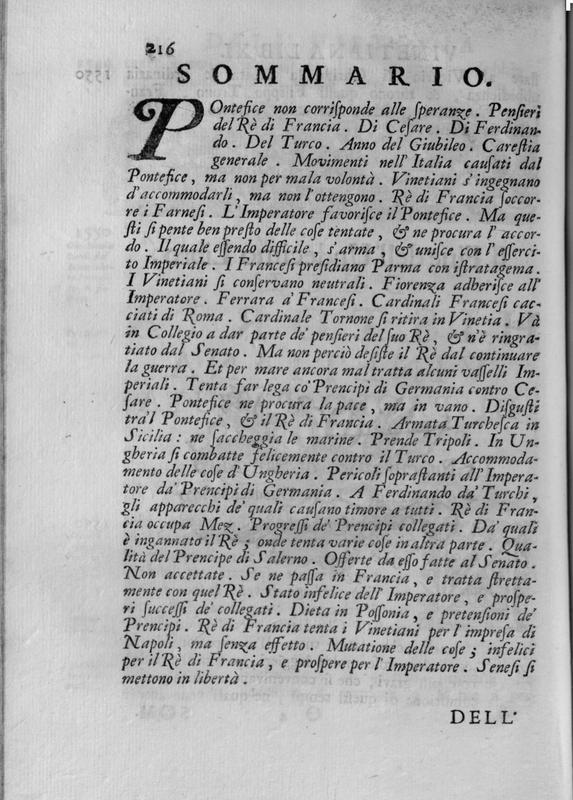 216
SOMMARIO.
POntefice non corriſponde alle ſperanze. Penſieri
del Rè di Francia. Di Ceſare. Di Ferdinan-
do. Del Turco. Anno del Giubileo. Careſtia
generale. Movimenti nell'Italia cauſati dal
Pontefice, ma non per mala volontà. Vinetiani s'ingegnano
d'accommodarli, ma non l'ottengono. Rè di Francia ſoccor-
re i Farneſi. L'Imperatore favoriſce il Pontefice. Ma que-
ſti ſi pente ben preſto delle coſe tentate, & ne procura l'accor-
do. Il quale eſſendo difficile, s'arma, & uniſce con l'eſſerci-
to Imperiale. I Franceſi preſidiano Parma con iſtratagema.
I Vinetiani ſi conſervano neutrali. Fiorenza adheriſce all'
Imperatore. Ferrara a' Franceſi. Cardinali Franceſi cac-
ciati di Roma. Cardinale Tornone ſi ritira in Vinetia. Và
in Collegio a dar parte de' penſieri del ſuo Rè, & n'è ringra-
tiato dal Senato. Ma non perciò deſiſte il Rè dal continuare
la guerra. Et per mare ancora mal tratta alcuni vaſſelli Im-
periali. Tenta far lega co' Prencipi di Germania contro Ce-
ſare. Pontefice ne procura la pace, ma in vano. Diſguſti
tra'l Pontefice, & il Rè di Francia. Armata Turcheſca in
Sicilia: ne ſaccheggia le marine. Prende Tripoli. In Un-
gheria ſi combatte felicemente contro il Turco. Accommoda-
mento delle coſe d'Ungheria. Pericoli ſopraſtanti all'Impera-
tore da' Prencipi di Germania. A Ferdinando da' Turchi,
gli apparecchi de' quali cauſano timore a tutti. Rè di Fran-
cia occupa Mez. Progreſſi de' Prencipi collegati. Da' quali
è ingannato il Rè; onde tenta varie coſe in altra parte. Qua-
lità del Prencipe di Salerno. Offerte da eſſo fatte al Senato.
Non accettate. Se ne paſſa in Francia, e tratta ſtretta-
mente con quel Rè. Stato infelice dell'Imperatore, e proſpe-
ri ſucceſſi de' collegati. Dieta in Poſſonia, e pretenſioni de'
Prencipi. Rè di Francia tenta i Vinetiani per l'impreſa di
Napoli, ma ſenza effetto. Mutatione delle coſe; infelici
per il Rè di Francia, e proſpere per l'Imperatore. Seneſi ſi
mettono in libertà.
DELL'